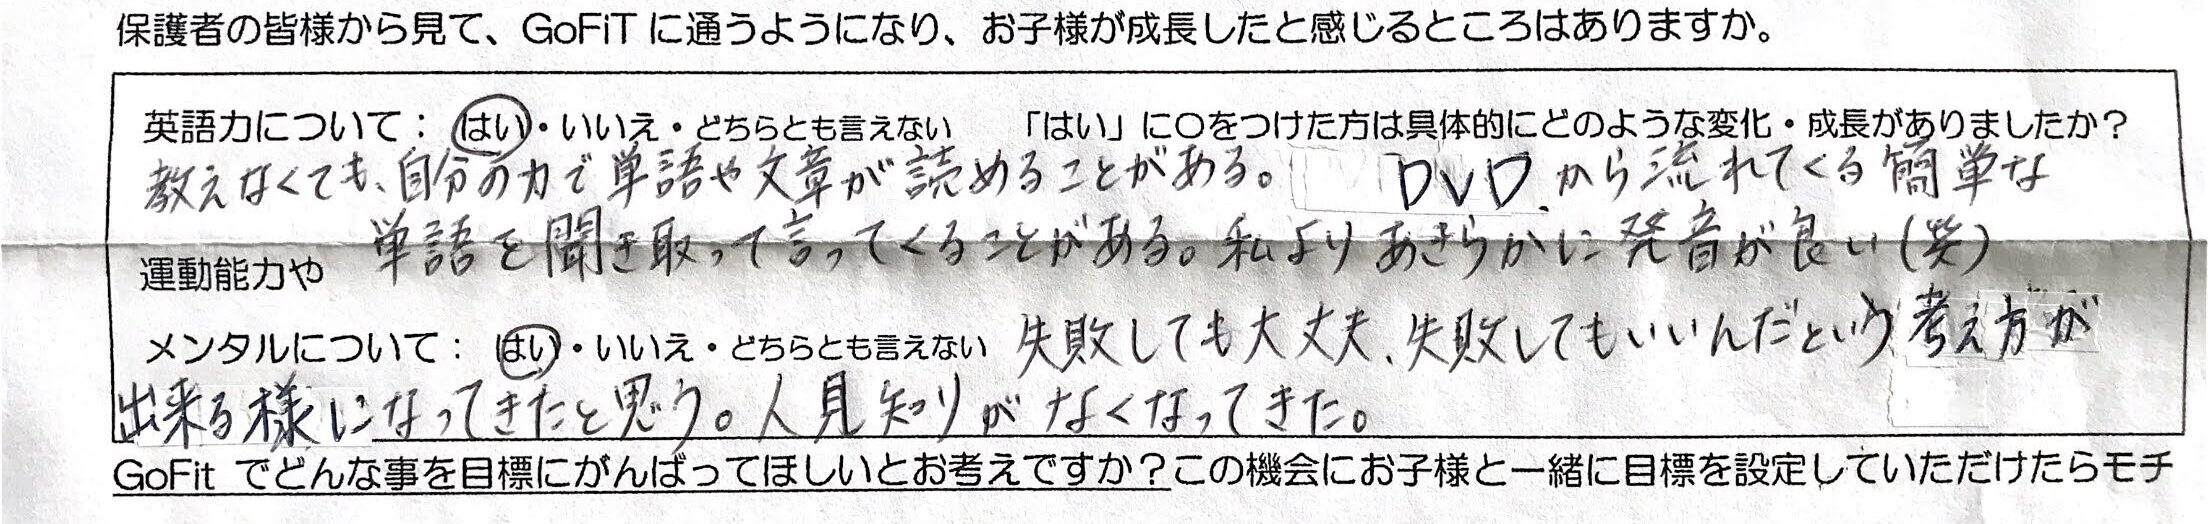 保護者の皆様から見て、GoFiTに通うようになり、お子様が成長したと感じるところはありますか。
英語力について：はい・いいえ・どちらとも言えない　「はい」に〇をつけた方は具体的にどのような変化・成長がありましたか？
教えなくても、自分の力で単語や文章が読めることがある。DVD.から流れてくる簡単な
単語を聞き取って言ってくることがある。私よりあきらかに発音が良い(笑)
運動能力や
メンタルについて：はい・いいえ・どちらとも言えない 失敗しても大丈夫、失敗してもいいんだという考え方が
出来る様になってきたと思う。人見知りがなくなってきた。
GoFit でどんな事を目標にがんばってほしいとお考えですか？この機会にお子様と一緒に目標を設定していただけたらモチ